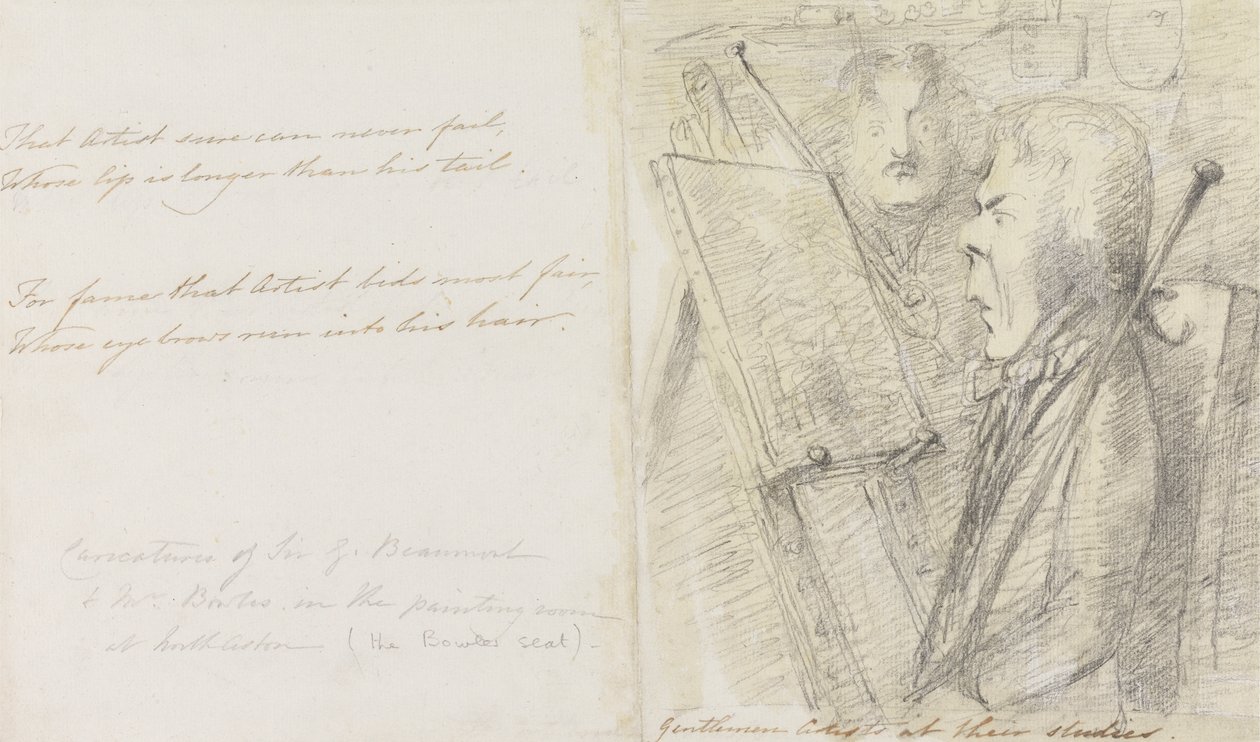 That Artist sure can never fail,
Whose lip is longer than his tail.
For fame that Artist bids most fair,
Whose eye brows run into his hair.
Caricatures of Sir G. Beaumont
& Mr. Bowles in the painting room
at North Aston (the Bowles seat).
Gentlemen Artists at their studies.